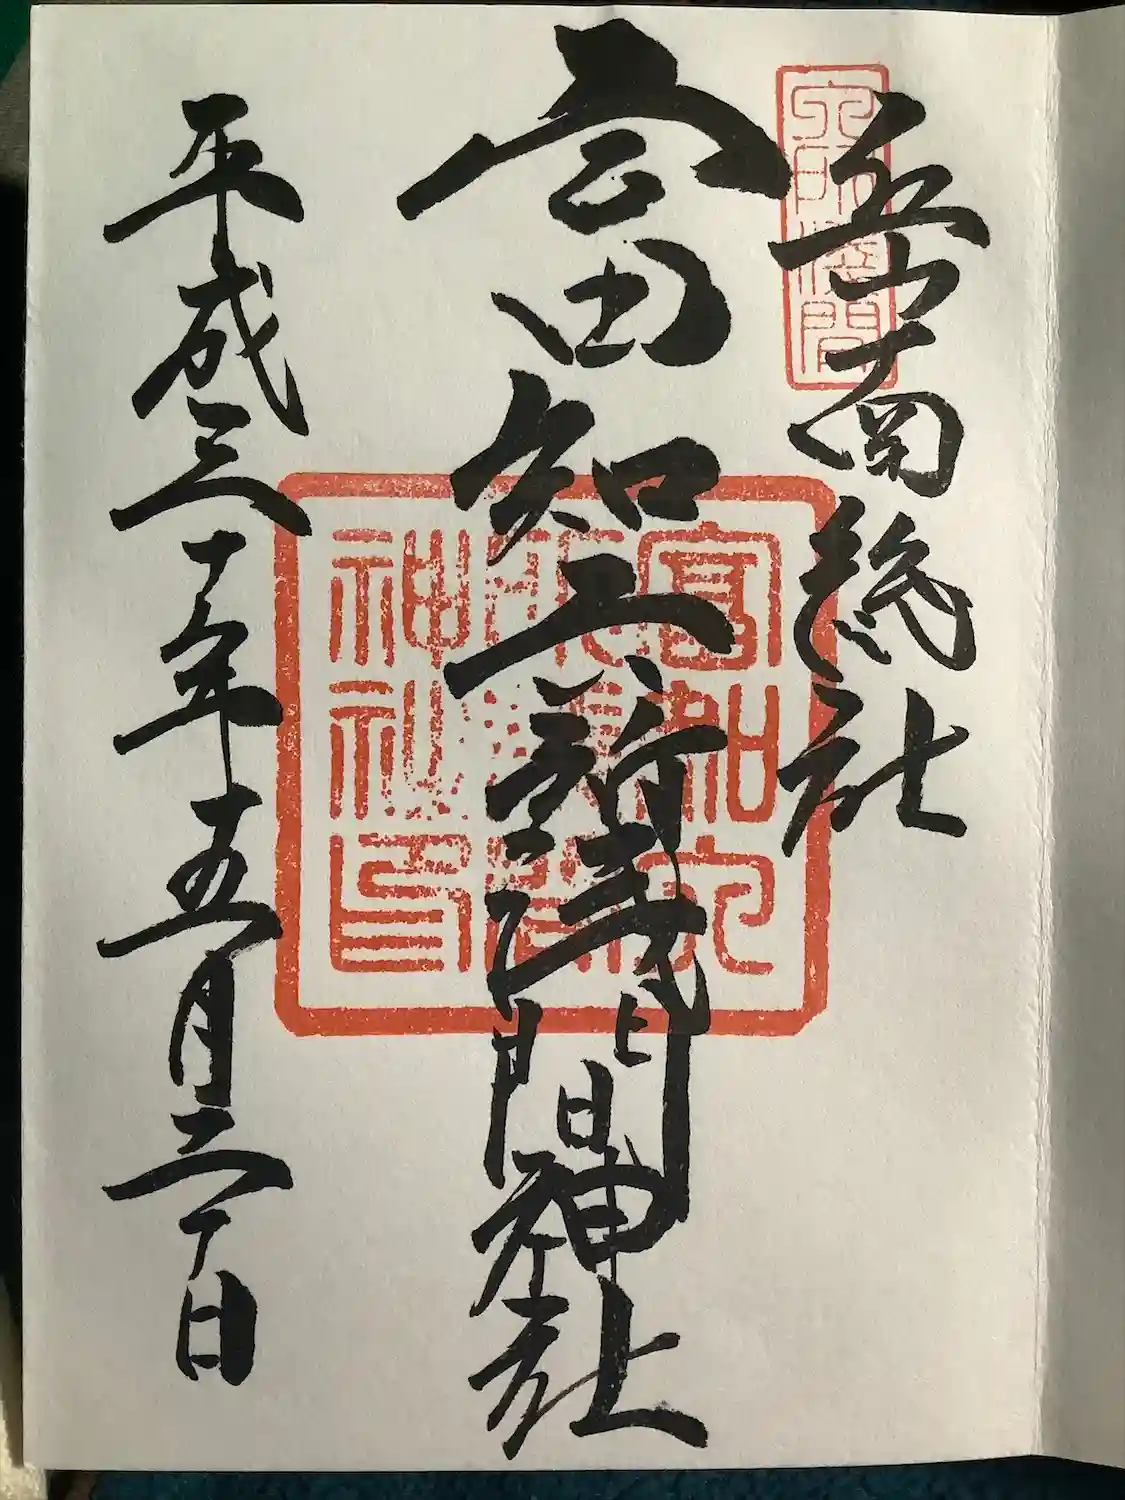 六所浅間
岳南総社
富知六所浅間神社
富知六
所浅間
神社印
平成三十年五月二十日